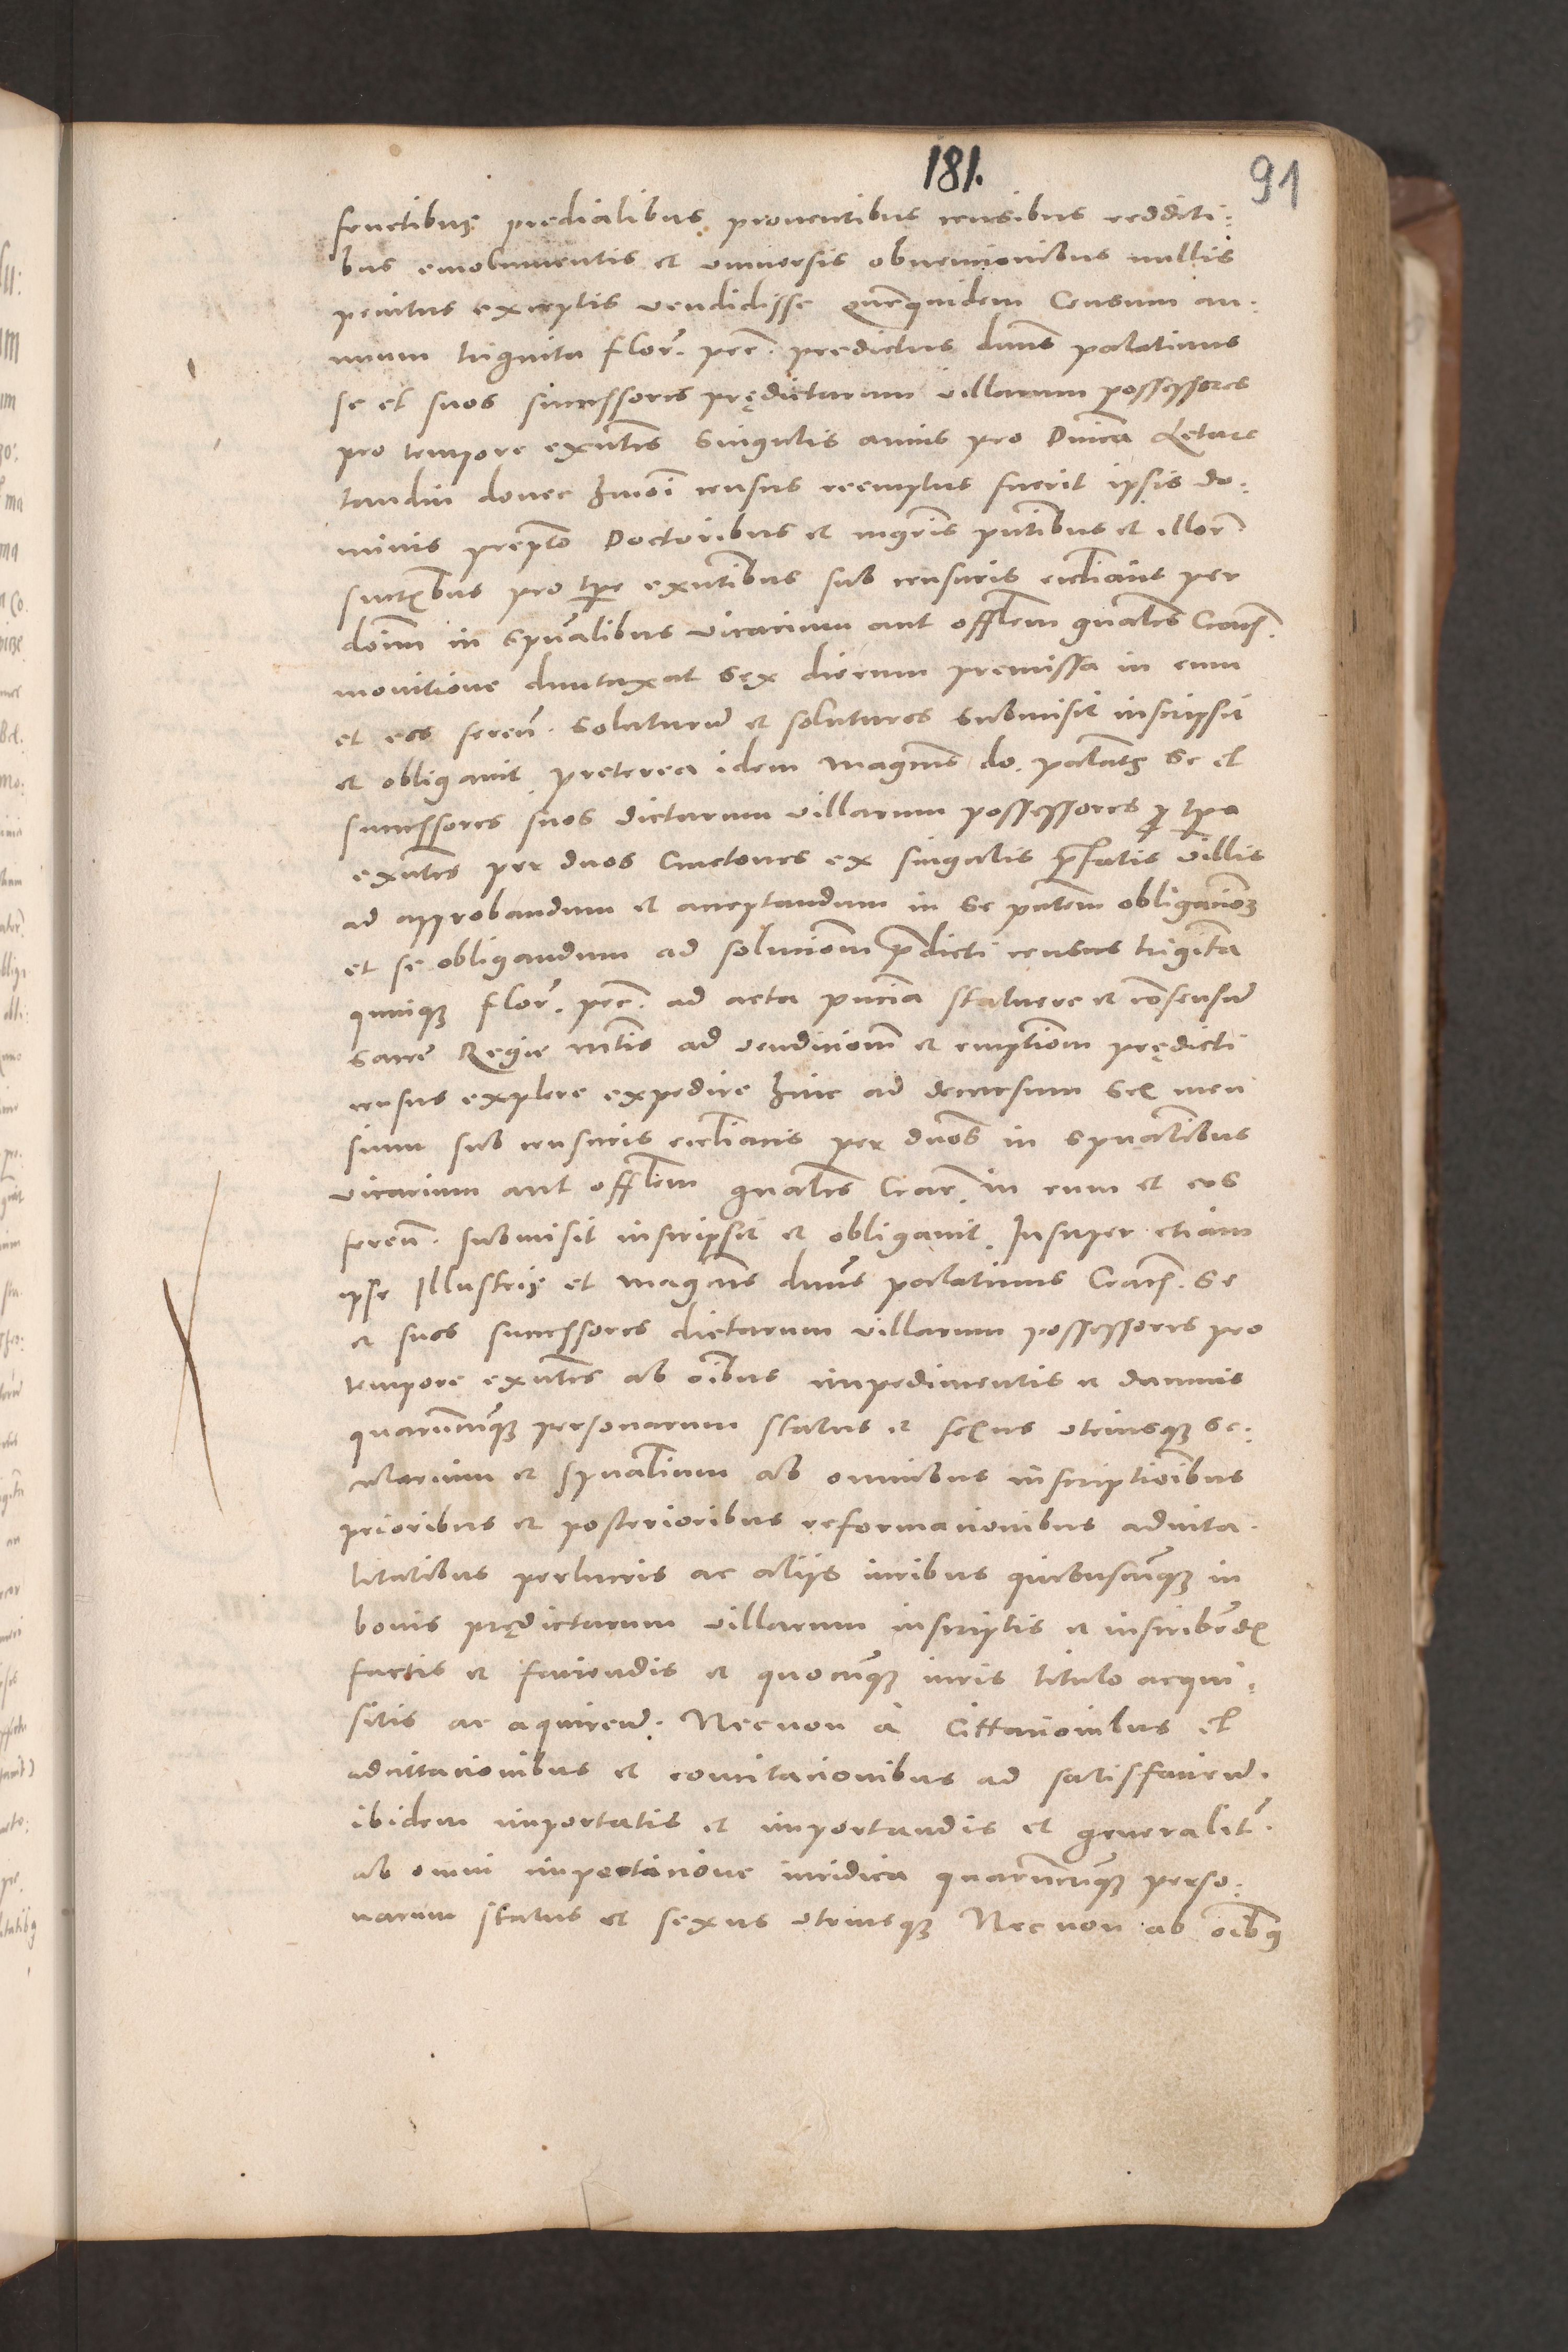 181.
91
fructibus predialibus proventibus censibus redditi:
bus emolumentis et universis obvencionibus nullis
penitus exceptis vendidisse Quemquidem Censum an:
nuum triginta flor. pec. predictus dnus palatinus
se et suos successores prędictarum villarum possessores
pro tempore exntes Singulis annis pro Dnica Letare
tandiu donec hmoi census reemptus fuerit ipsis do:
minis prepto Doctoribus et mgris pntibus et illor
suctbus pro tpe exntibus sub censuris ecclianis per
doim in spualibus vicarium aut offlem gnales Crac.
monitione duntaxat sex dierum premissa in eum
et eos feren. soluturum et soluturos submisit inscripsit
et obligavit, preterea idem magcus do. palatus se et
successores suos dictarum villarum possessores p tpe
exntes per duos Cmetones ex singulis prefatis villis
ad approbandum et acceptandum in se pntem obligacionem
et se obligandum ad solucionem predicti census triginta
quinque flor. pec. ad acta pncia statuere et consensum
sacre Regie mtis ad vendicionem et emptionem prędicti
census explere expedire hinc ad decursum sex men
sium sub censuris ecclianis per dnos in spualibus
vicarium aut offlem gnales Crac. in eum et eos
feren. submisit inscripsit et obligavit. Insuper etiam
ipse Illustris et magcus dnus palatinus Crac. se
et suos successores dictarum villarum possessores pro
tempore exntes ab oibus impedimentis et damnis
quarumcunque personarum status et sexus utriusque se:
cularium et spualium ab omnibus inscriptioibus
prioribus et posterioribus reformacionibus advita.
litatibus perlucris ac aliis iuribus quibuscunque in
bonis prędictarum villarum inscriptis et inscribend
factis et faciendis et quocunque iuris titulo acqui:
sitis ac aquirend. Necnon a Cittacionibus et
adcittacionibus et concitacionibus ad satisfaciend.
ibidem importatis et importandis et generalit.
ab omni impeticione iuridica quarumcunque perso:
narum status et sexus utriusque Necnon ab oibus